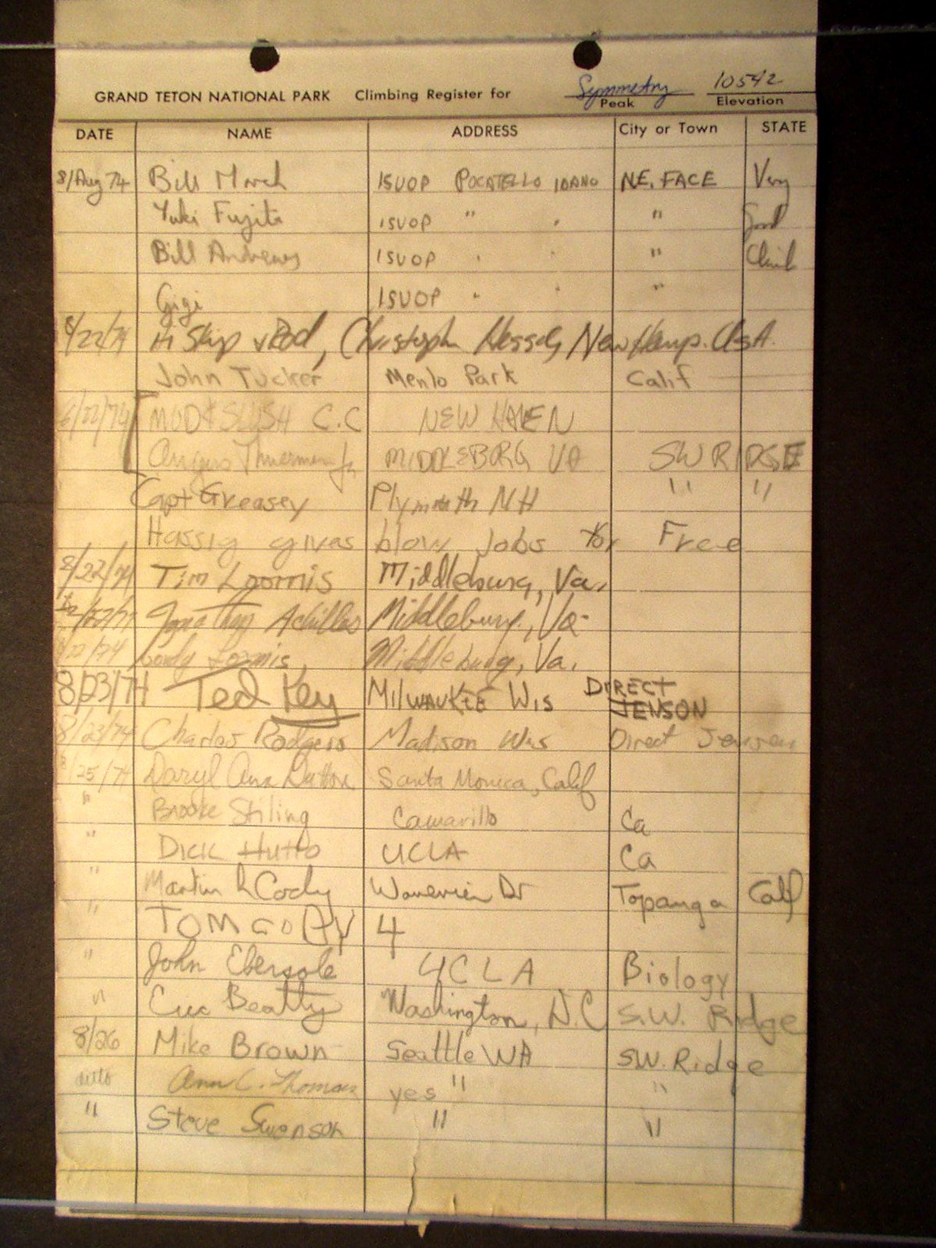 Symmetry 10542
GRAND TETON NATIONAL PARK Climbing Register for Peak Elevation
DATE NAME ADDRESS City or Town STATE
8/Aug 74 Bill March ISUOP POCATELLO IDAHO NE. FACE Very
Yuki Fujita ISUOP " " " Good
Bill Andrews ISUOP " " " Climb
Gigi ISUOP " " "
8/22/74 Hi Skip & Rod, Christoph Hessel, New Hamp. USA.
John Tucker Menlo Park Calif
8/22/74 MUD & SLUSH C.C NEW HAVEN
Angus Thuermer Jr MIDDLEBURG VA SW RIDGE
Capt Greasey Plymouth NH " "
Hassig gives blow jobs for Free
8/22/74 Tim Loomis Middleburg, Va.
Jonathan Achilles Middleburg, Va.
Loomis, Middleburg, Va.
8/23/74 Ted Key MILWAUKIE WIS DIRECT JENSON
8/23/74 Charles Rodgers Madison Wis Direct Jensen
8/25/74 Daryl Ann Santa Monica, Calif
" Brooke Stiling Camarillo Ca
" DICK Hutto UCLA Ca
" Martin L Cody Dr Topanga Calf
" TOM CODY 4
" John Ebersole UCLA Biology
" Eric Beatty Washington, D.C S.W. Ridge
8/26 Mike Brown Seattle WA SW. Ridge
ditto Ann C. Thomas yes " "
" Steve Swenson " "